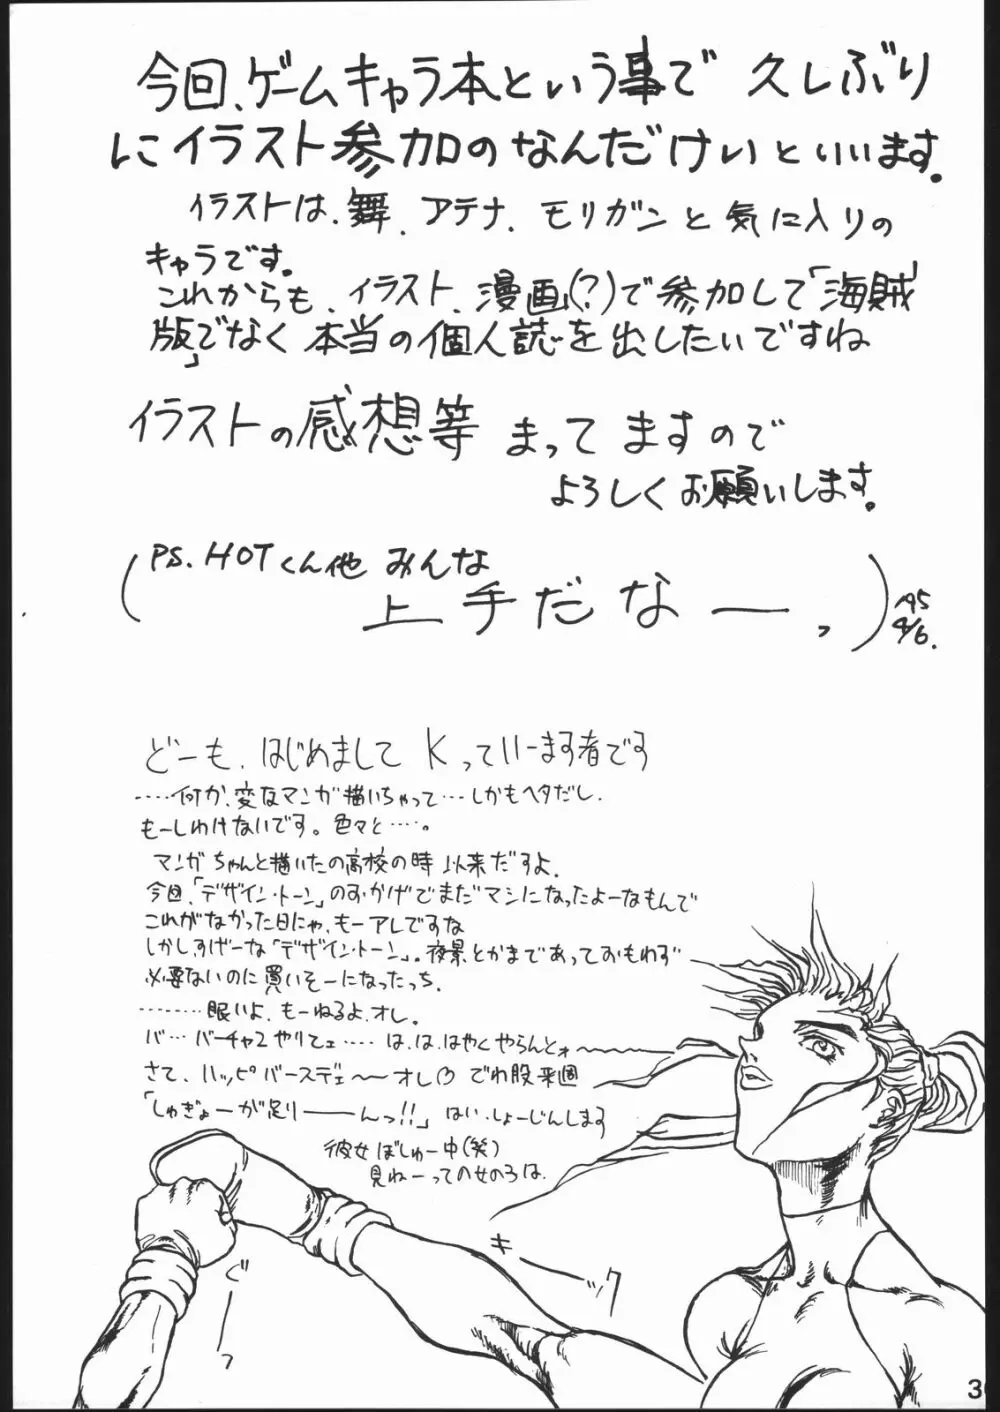 今回、ゲームキャラ本という事で 久しぶり
にイラスト参加のなんだけいといいます。
イラストは、舞、アテナ、モリガンと気に入りの
キャラです。
これからも、イラスト、漫画(?)で参加して「海賊
版」でなく本当の個人誌を出したいですね
イラストの感想等 まってますので
よろしくお願いします。
(PS. HOTくん他 みんな
上手だなーっ)
'95
4/6.
どーも、はじめまして Kっていーます者です
‥‥何か、変なマンガ描いちゃって…しかもヘタだし、
もーしわけないです。色々と‥‥。
マンガちゃんと描いたの高校の時以来だすよ、
今回、「デザイン・トーン」のおかげでまだマシになったよーなもんで
これがなかった日にゃ、もーアレですな
しかしすげーな「デザイン・トーン」。夜景とかまであっておもわず
必要ないのに買いそーになったっち、
‥‥‥‥眠いよ、もーねるよ、オレ。
バ… バーチャ2やりてェ‥‥は、は、はやくやらんとォ〜
さて、ハッピバースデェ〜オレ♡ でわ股来週
「しゅぎょーが足りーーんっ!!」はい、しょーじんします
彼女ぼしゅー中(笑)
見ねーっての女のろは、
ぐーっ
キ
ック
3